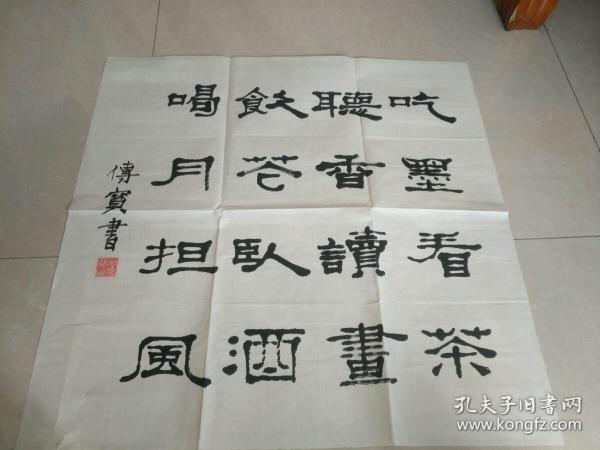 吃墨看茶
聽香讀畫
飲芲臥酒
喝月担風
傅寶書
孔夫子旧书网
www.kongfz.com